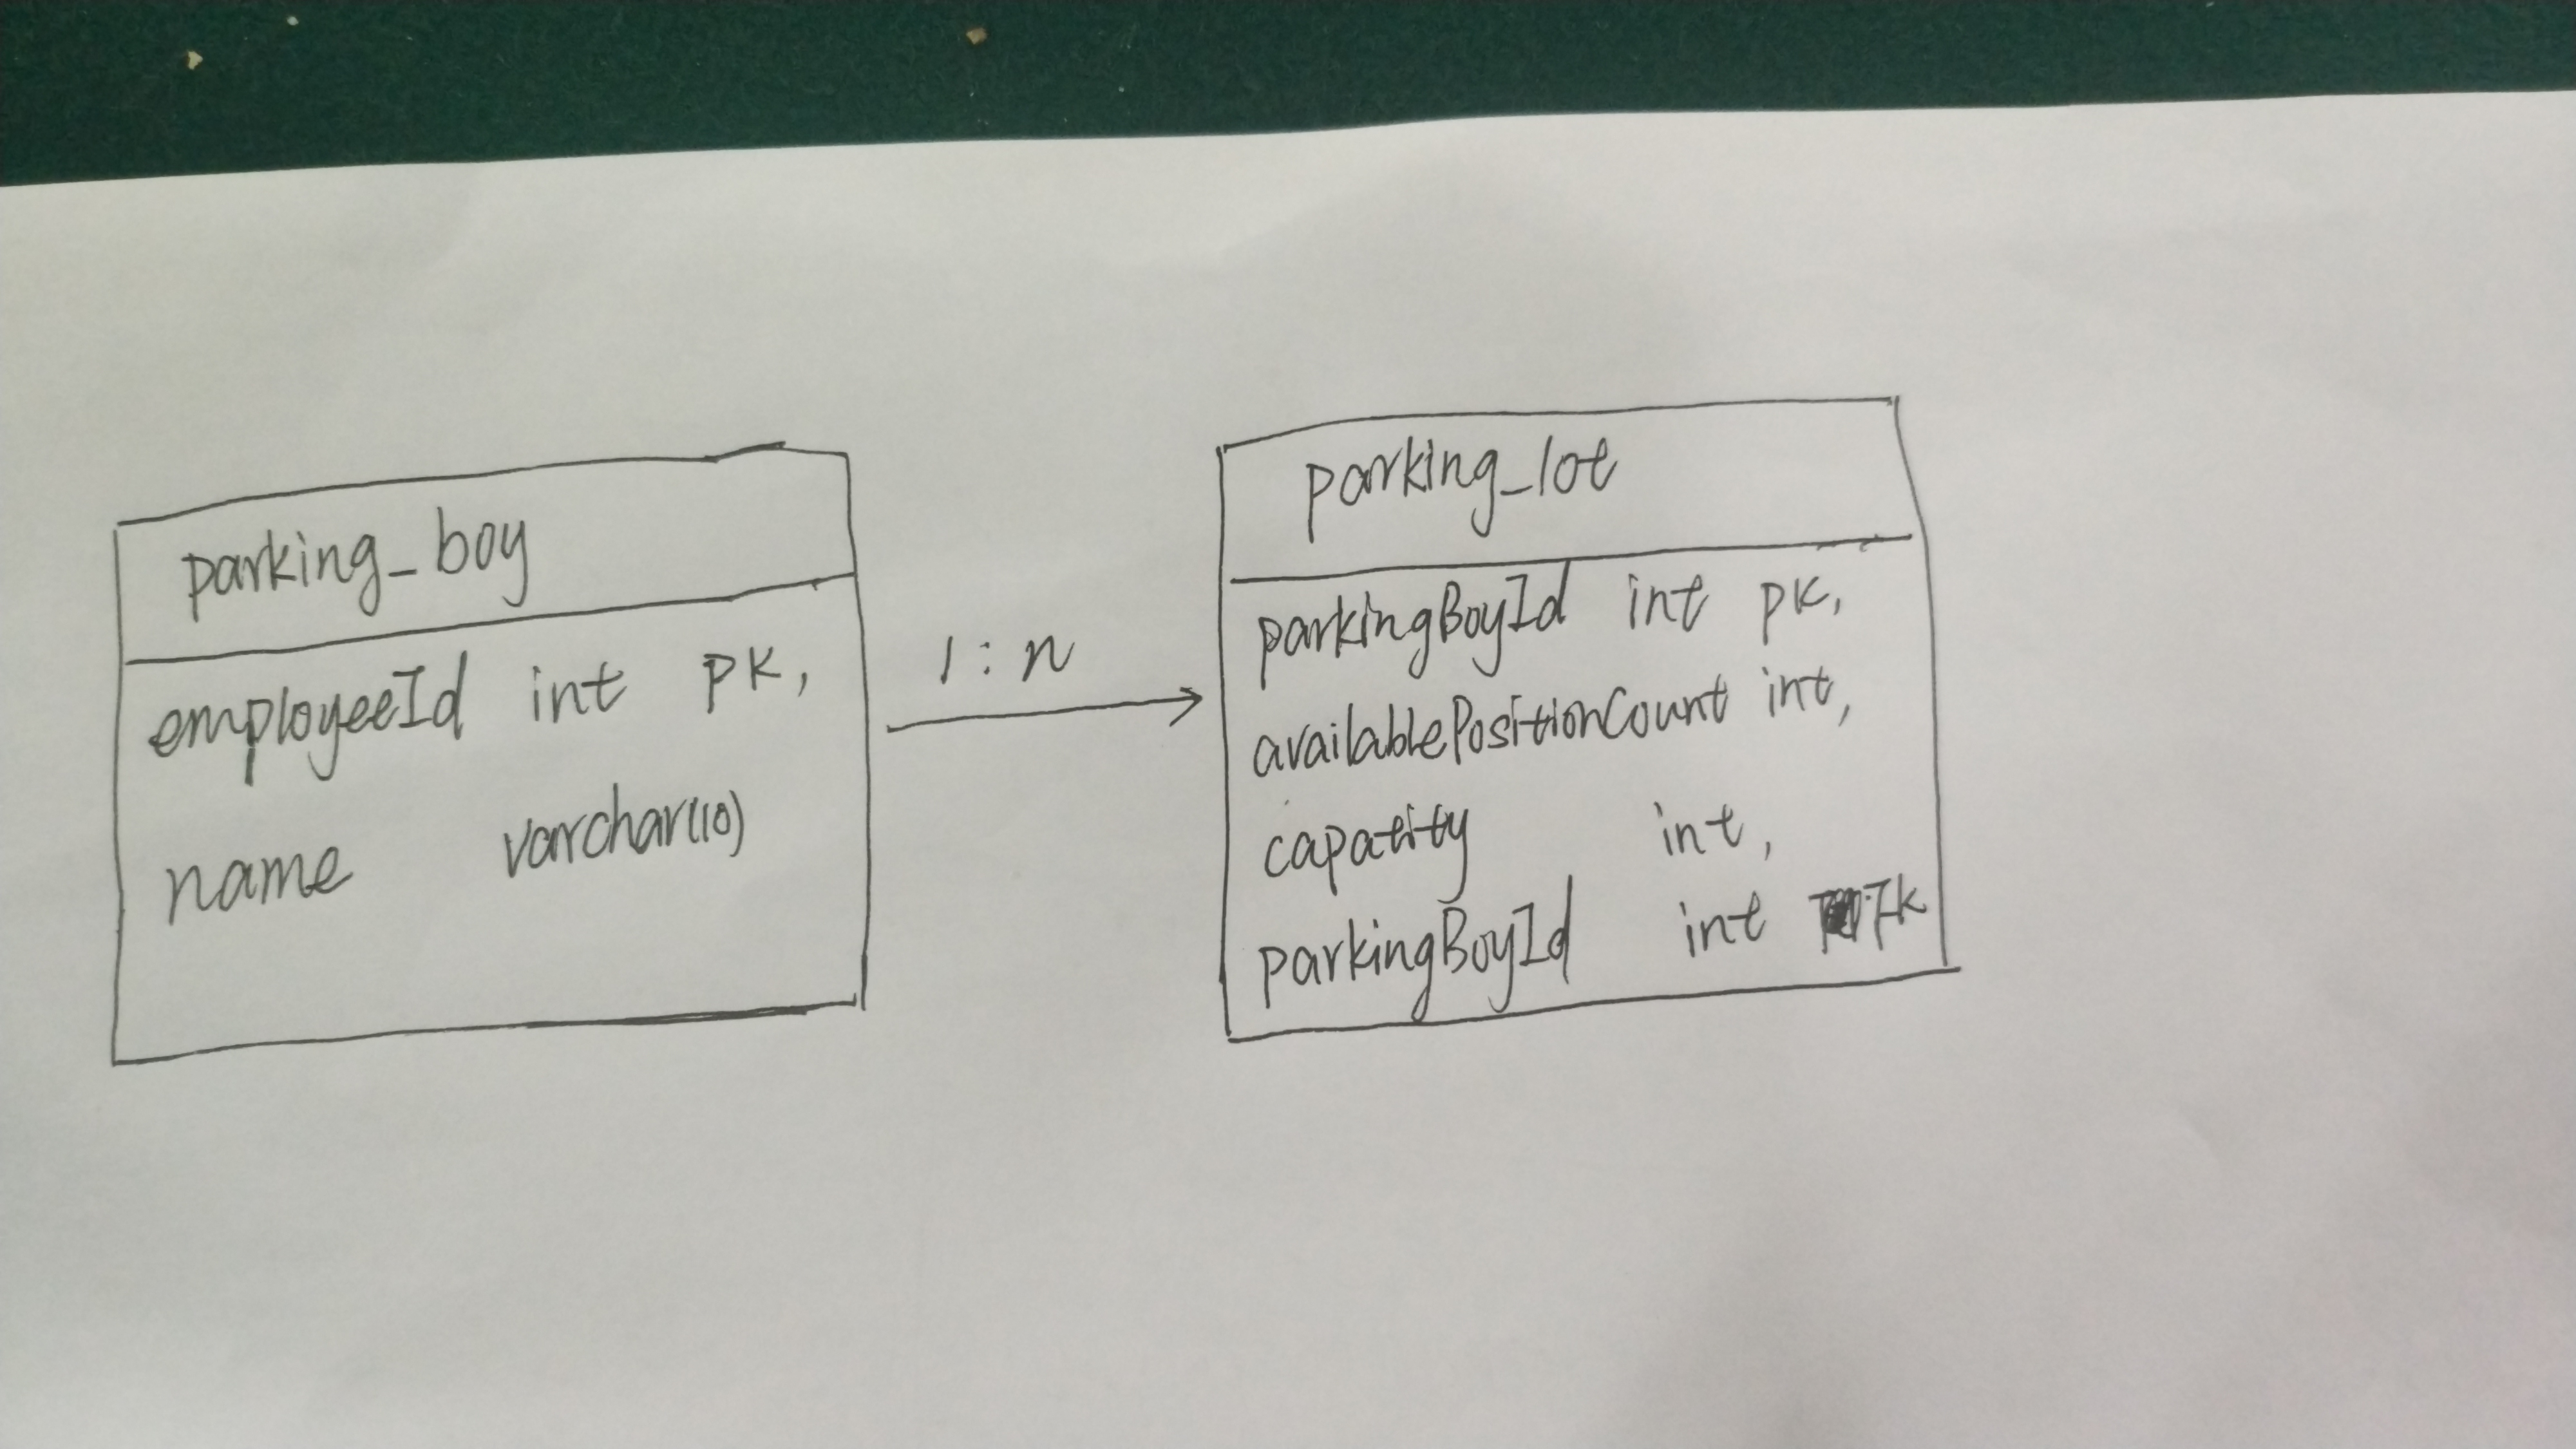 parking_boy
employeeId int pk,
name varchar(10)
1:n
parking_lot
parkingBoyId int pk,
availablePositionCount int,
capacity int,
parkingBoyId int fk